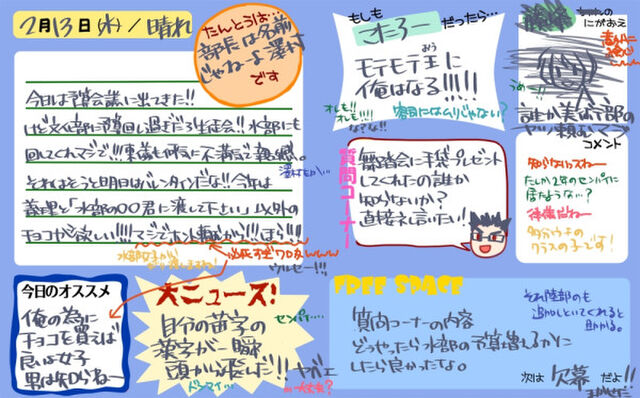 2月13日(水)/晴れ
たんとうは…
部長は名前
じゃねーよ澤村
です
今日は予算会議に出てきた!!
けど文化部に予算回し過ぎだろ生徒会!!水部にも
回してくれマジで!!!東義も何気に不満で親感。
それはそうと明日はバレンタインだな!!今年は
義理と「水部の〇〇君に渡して下さい」以外の
チョコが欲しい!!!!マジでホント頼むから!!!ほら!!!
必死すぎワロタwww
ウルセー!!!
もしも
こたろー
だったら…
モテモテ王に
俺はなる!!!!!
オレも!!
オレも!!!!
な?な!!
にがおえ
うめー!!
誰か美術部の
ヤツ頼むマジで
コメント
知らないッスねー
たしか2年のセンパイに
居たような…?
後輩だねー
多分ウチの
クラスの子です!
質問コーナー
舞踏会に手袋プレゼント
してくれたの誰か
知らないか?
直接礼言いたい!!
今日のオススメ
俺の為に
チョコを買えば
良い女子
男は知らねー
大ニュース!
自分の苗字の
漢字が一瞬
頭から飛んだ!!ヤバェ
センパイ…
ドンマイ…
大丈夫?
FREE SPACE
質問コーナーの内容
どうやったら水部の予算増えるかに
したら良かったな。
それ陸部のも
追加しといてくれると
助かる。
次は 欠幕 だよ!!